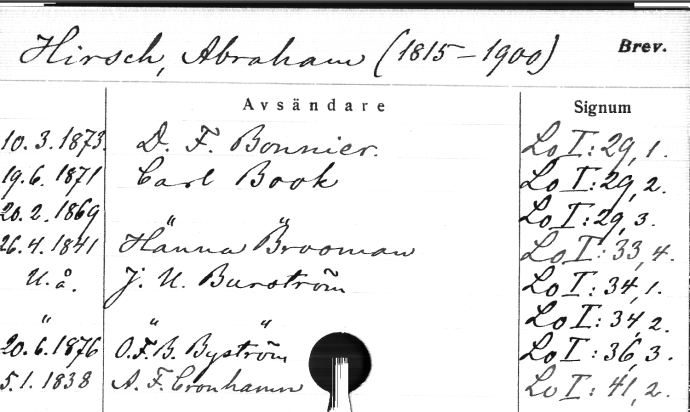 Hirsch, Abraham (1815-1900) Brev.
Avsändare Signum
10.3.1873. D. F. Bonnier. Lo I:29,1.
19.6.1871 Carl Book Lo I:29,2.
20.2.1869 " " Lo I:29,3.
26.4.1841 Hanna Brooman Lo I:33,4.
U.å. J. U. Burström Lo I:34,1.
" " " Lo I:34,2.
20.6.1876 O.F.B. Byström Lo I:36,3.
5.1.1838 A. F. Cronhamn Lo I:41,2.